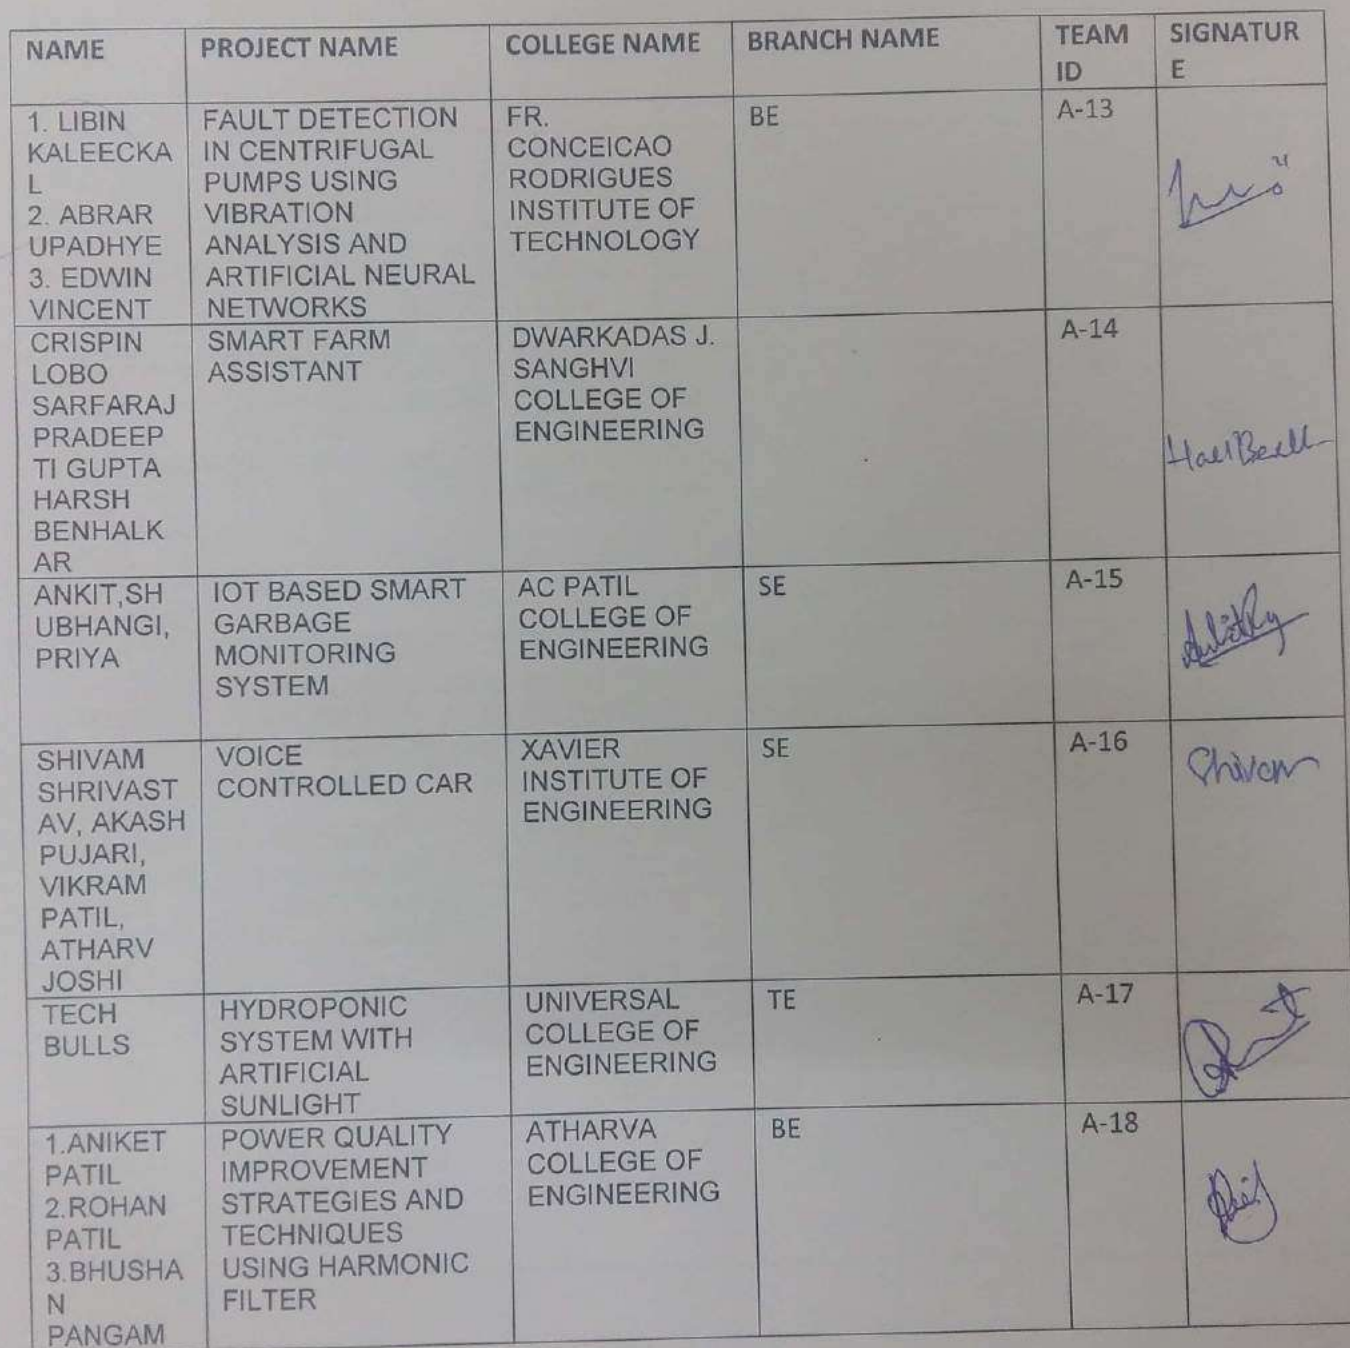 NAME
PROJECT NAME
COLLEGE NAME
BRANCH NAME
TEAM
ID
SIGNATUR
E
1. LIBIN
KALEECKA
L
2. ABRAR
UPADHYE
3. EDWIN
VINCENT
FAULT DETECTION
IN CENTRIFUGAL
PUMPS USING
VIBRATION
ANALYSIS AND
ARTIFICIAL NEURAL
NETWORKS
FR.
CONCEICAO
RODRIGUES
INSTITUTE OF
TECHNOLOGY
BE
A-13
CRISPIN
LOBO
SARFARAJ
PRADEEP
TI GUPTA
HARSH
BENHALK
AR
SMART FARM
ASSISTANT
DWARKADAS J.
SANGHVI
COLLEGE OF
ENGINEERING
A-14
ANKIT,SH
UBHANGI,
PRIYA
IOT BASED SMART
GARBAGE
MONITORING
SYSTEM
AC PATIL
COLLEGE OF
ENGINEERING
SE
A-15
SHIVAM
SHRIVAST
AV, AKASH
PUJARI,
VIKRAM
PATIL,
ATHARV
JOSHI
VOICE
CONTROLLED CAR
XAVIER
INSTITUTE OF
ENGINEERING
SE
A-16
TECH
BULLS
HYDROPONIC
SYSTEM WITH
ARTIFICIAL
SUNLIGHT
UNIVERSAL
COLLEGE OF
ENGINEERING
TE
A-17
1.ANIKET
PATIL
2.ROHAN
PATIL
3.BHUSHA
N
PANGAM
POWER QUALITY
IMPROVEMENT
STRATEGIES AND
TECHNIQUES
USING HARMONIC
FILTER
ATHARVA
COLLEGE OF
ENGINEERING
BE
A-18